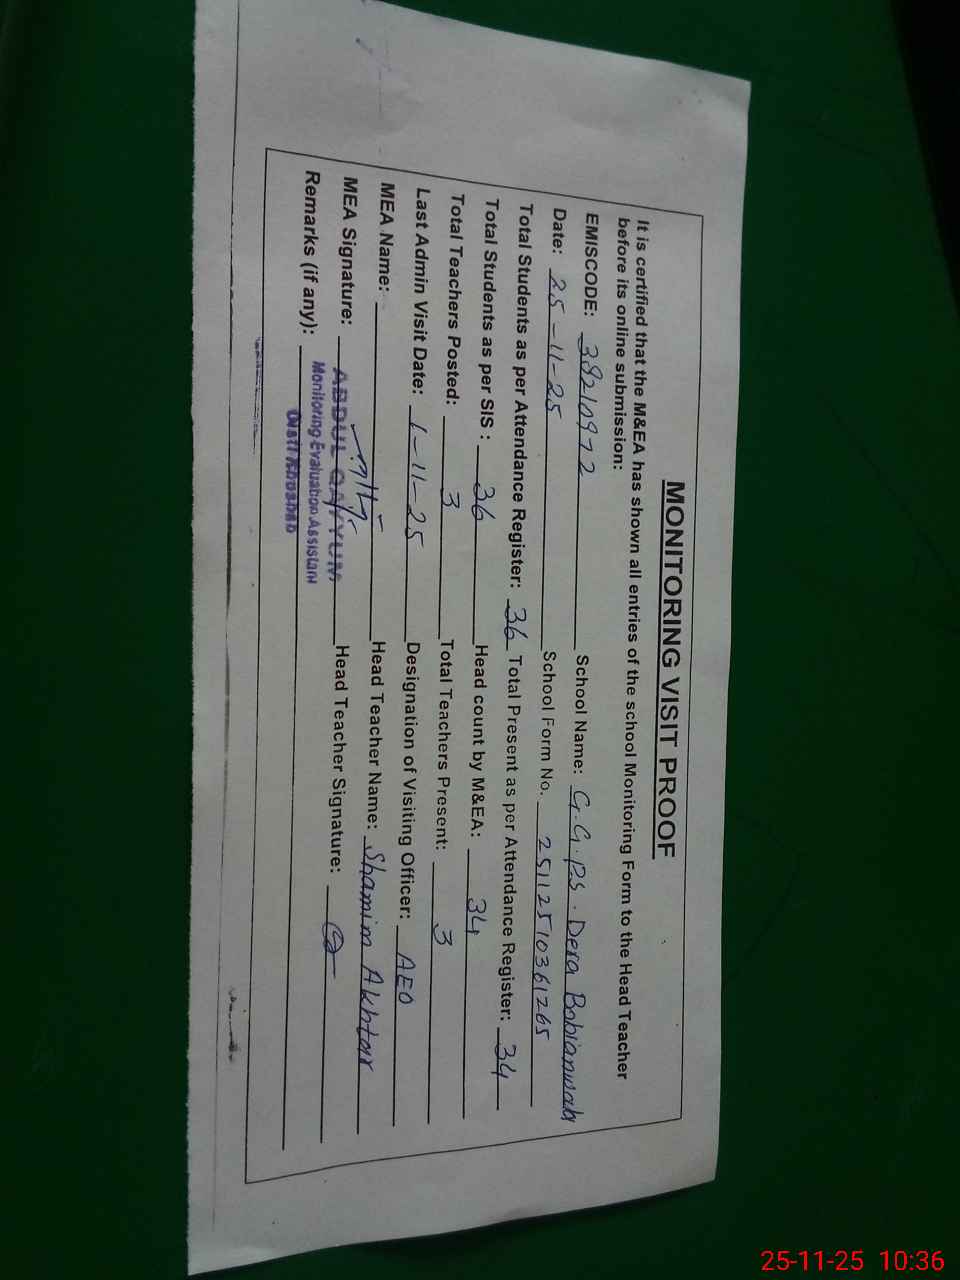 MONITORING VISIT PROOF
It is certified that the M&EA has shown all entries of the school Monitoring Form to the Head Teacher
before its online submission:
EMISCODE: 38210972 School Name: G.G.P.S. Dera
Date: 25-11-25 School Form No. 25112510361265
Total Students as per Attendance Register: 36 Total Present as per Attendance Register: 34
Total Students as per SIS : 36 Head count by M&EA: 34
Total Teachers Posted: 3 Total Teachers Present: 3
Last Admin Visit Date: 1-11-25 Designation of Visiting Officer: AEO
MEA Name: Head Teacher Name: Shamim Akhtar
MEA Signature: ABDUL QAYYUM Head Teacher Signature:
Monitoring Evaluation Assistant
Remarks (if any):
Distt Khushab
25-11-25 10:36